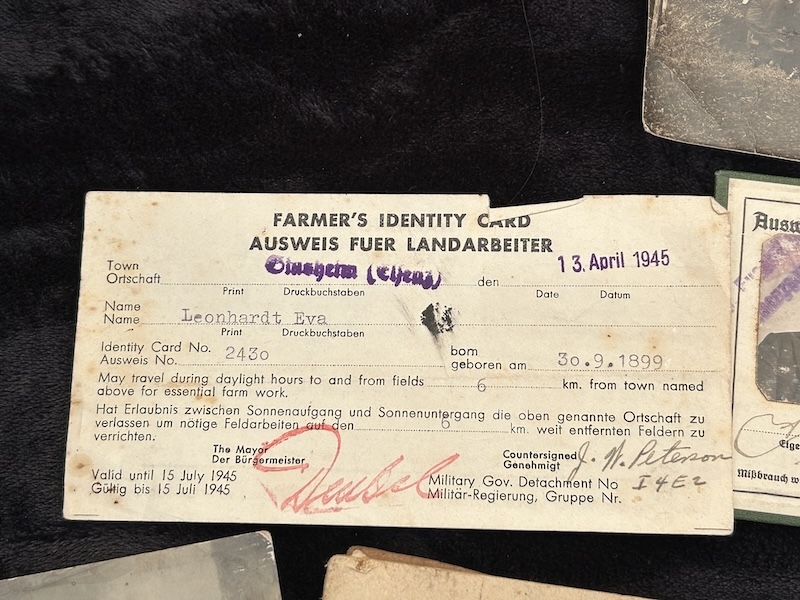 FARMER'S IDENTITY CARD
AUSWEIS FUER LANDARBEITER
Town
Ortschaft Sinsheim (Elsenz) den 13. April 1945
Print Druckbuchstaben Date Datum
Name
Name Leonhardt Eva
Print Druckbuchstaben
Identity Card No. born
Ausweis No. 2430 geboren am 30.9.1899
May travel during daylight hours to and from fields 6 km. from town named
above for essential farm work.
Hat Erlaubnis zwischen Sonnenaufgang und Sonnenuntergang die oben genannte Ortschaft zu
verlassen um nötige Feldarbeiten auf den 6 km. weit entfernten Feldern zu
verrichten.
The Mayor Countersigned
Der Bürgermeister Genehmigt J. W. Peterson
Valid until 15 July 1945 Military Gov. Detachment No I4E2
Gültig bis 15 Juli 1945 Militär-Regierung, Gruppe Nr.
Ausw
Eige
Mißbrauch w